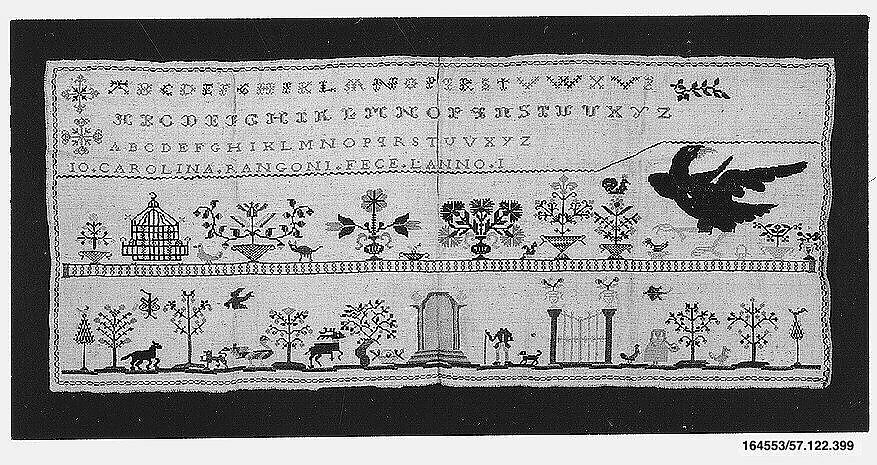 A B C D E F G H I K L M N O P Q R S T V W X Y Z
A B C D E F G H I K L M N O P Q R S T U V X Y Z
A B C D E F G H I K L M N O P Q R S T U V X Y Z
IO.CAROLINA.RANGONI.FECE.L'ANNO.I
164553/57.122.399